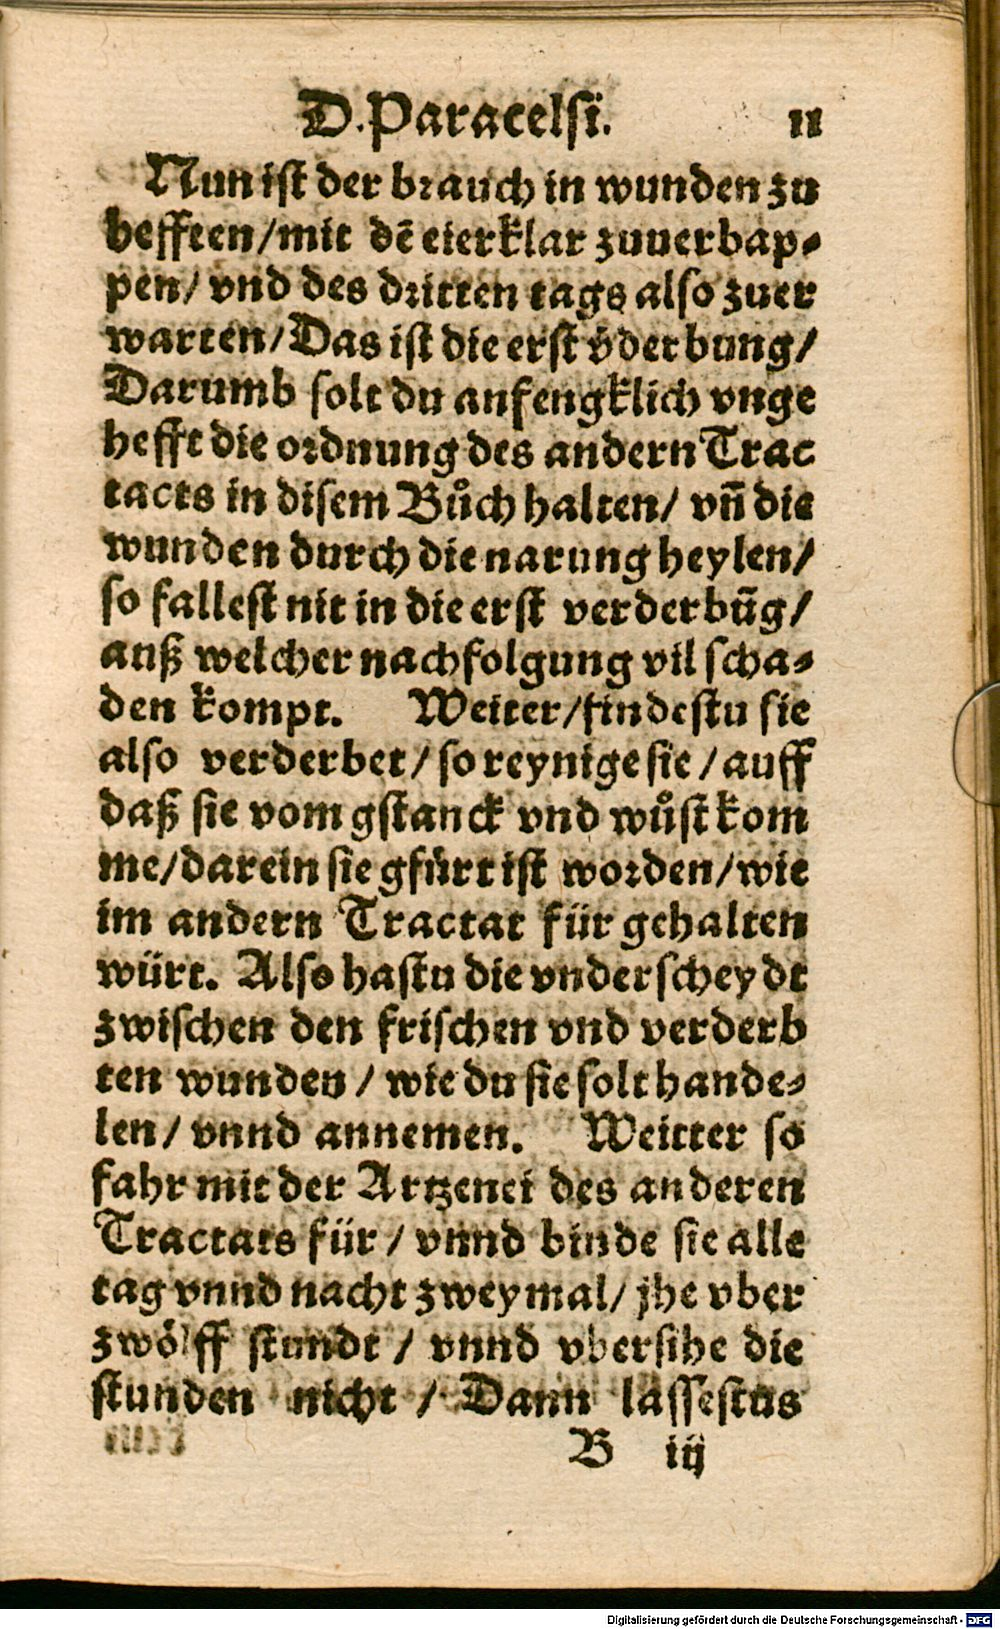 D. Paracelsi. 11
Nun ist der brauch in wunden zu
hefften/mit dē eierklar zuuerbap⸗
pen/ vnd des dritten tags also zuer
warten/Das ist die erst v̈derbung/
Darumb solt du anfengklich vnge
hefft die ordnung des andern Trac
tacts in disem Bůch halten/ vn̄ die
wunden durch die narung heylen/
so fallest nit in die erst verderbūg/
auß welcher nachfolgung vil scha⸗
den kompt. Weiter/findestu sie
also verderbet/ so reynige sie / auff
daß sie vom gstanck vnd wůst kom
me/darein sie gfürt ist worden/wie
im andern Tractat für gehalten
würt. Also hastu die vnderscheydt
zwischen den frischen vnd verderb
ten wunden / wie du sie solt hande⸗
len/ vnnd annemen. Weitter so
fahr mit der Artzenei des anderen
Tractats für / vnnd binde sie alle
tag vnnd nacht zweymal/ jhe vber
zwölff stundt / vnnd vbersihe die
stunden nicht / Dann lassestus
B iij
Digitalisierung gefördert durch die Deutsche Forschungsgemeinschaft - DFG